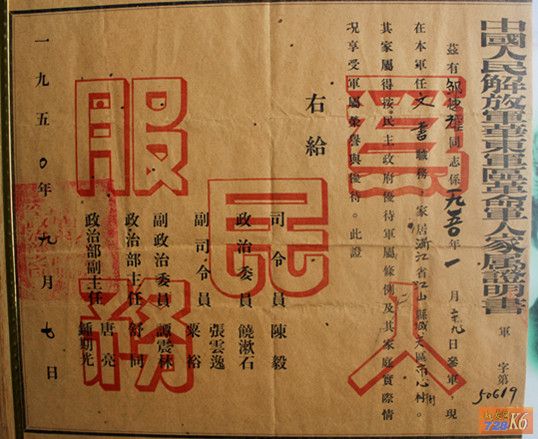 中國人民解放軍華東軍區革命軍人家屬證明書
軍 字第50619
茲有 同志係一九五0年一月 九日參軍，現
在本軍任文書職務，家居浙江省江山縣 區 心村。
其家屬得按民主政府優待軍屬條例及其家庭實際情
況享受軍屬榮譽與優待。此證
右給
司令員 陳毅
政治委員 饒漱石
副司令員 張雲逸
粟裕
副政治委員 譚震林
政治部主任 舒同
政治部副主任 唐亮
鍾期光
一九五0年九月七日
爲人
民
服務
728 K6